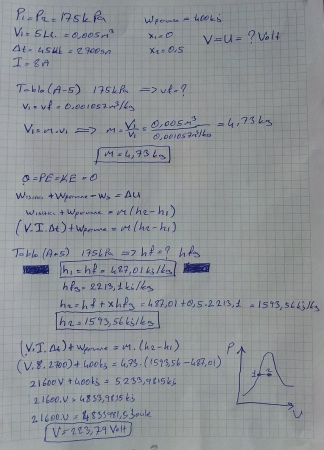 P₁=P₂=175kPa
Wpervane=400kj
V₁=5Lt.=0,005m³
x₁=0
V=U=?Volt
Δt=45dk=2700sn
x₂=0,5
I=8A
Tablo(A-5) 175kPa ⇒vf=?
v₁=vf=0,001057m³/kg
V₁=m.v₁ ⇒ m=V₁/v₁=0,005m³/0,001057m³/kg=4,73kg
m=4,73kg
Q=PE=KE=0
+Wpervane-Wb=ΔU
+Wpervane=m(h₂-h₁)
(V.I.Δt)+Wpervane=m(h₂-h₁)
Tablo(A-5) 175kPa⇒hf=? hfg
h₁=hf=487,01kj/kg
hfg=2213,1kj/kg
h₂=hf+xhfg=487,01+0,5.2213,1=1593,56kj/kg
h₂=1593,56kj/kg
(V.I.Δt)+Wpervane=m.(h₂-h₁)
(V.8.2700)+400kj=4,73.(1593,56-487,01)
21600V+400kj=5233,9815kj
21600.V=4833,9815kj
21600.V=4833981,5joule
V=223,79Volt
P
1
2
V